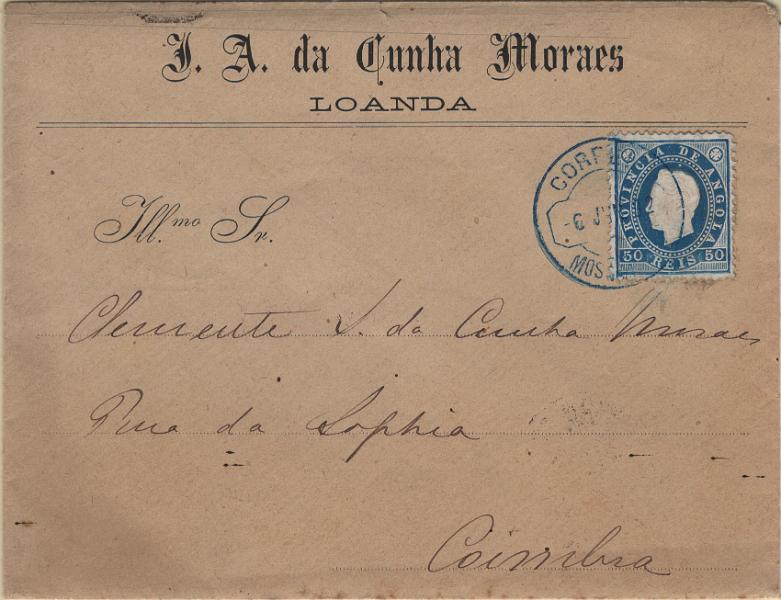 J. A. da Cunha Moraes
LOANDA
CORRE
-6 JU
MOSS
PROVINCIA DE ANGOLA
50 REIS 50
Ill.mo Sr.
Clemente J. da Cunha Moraes
Rua da Sophia
Coimbra